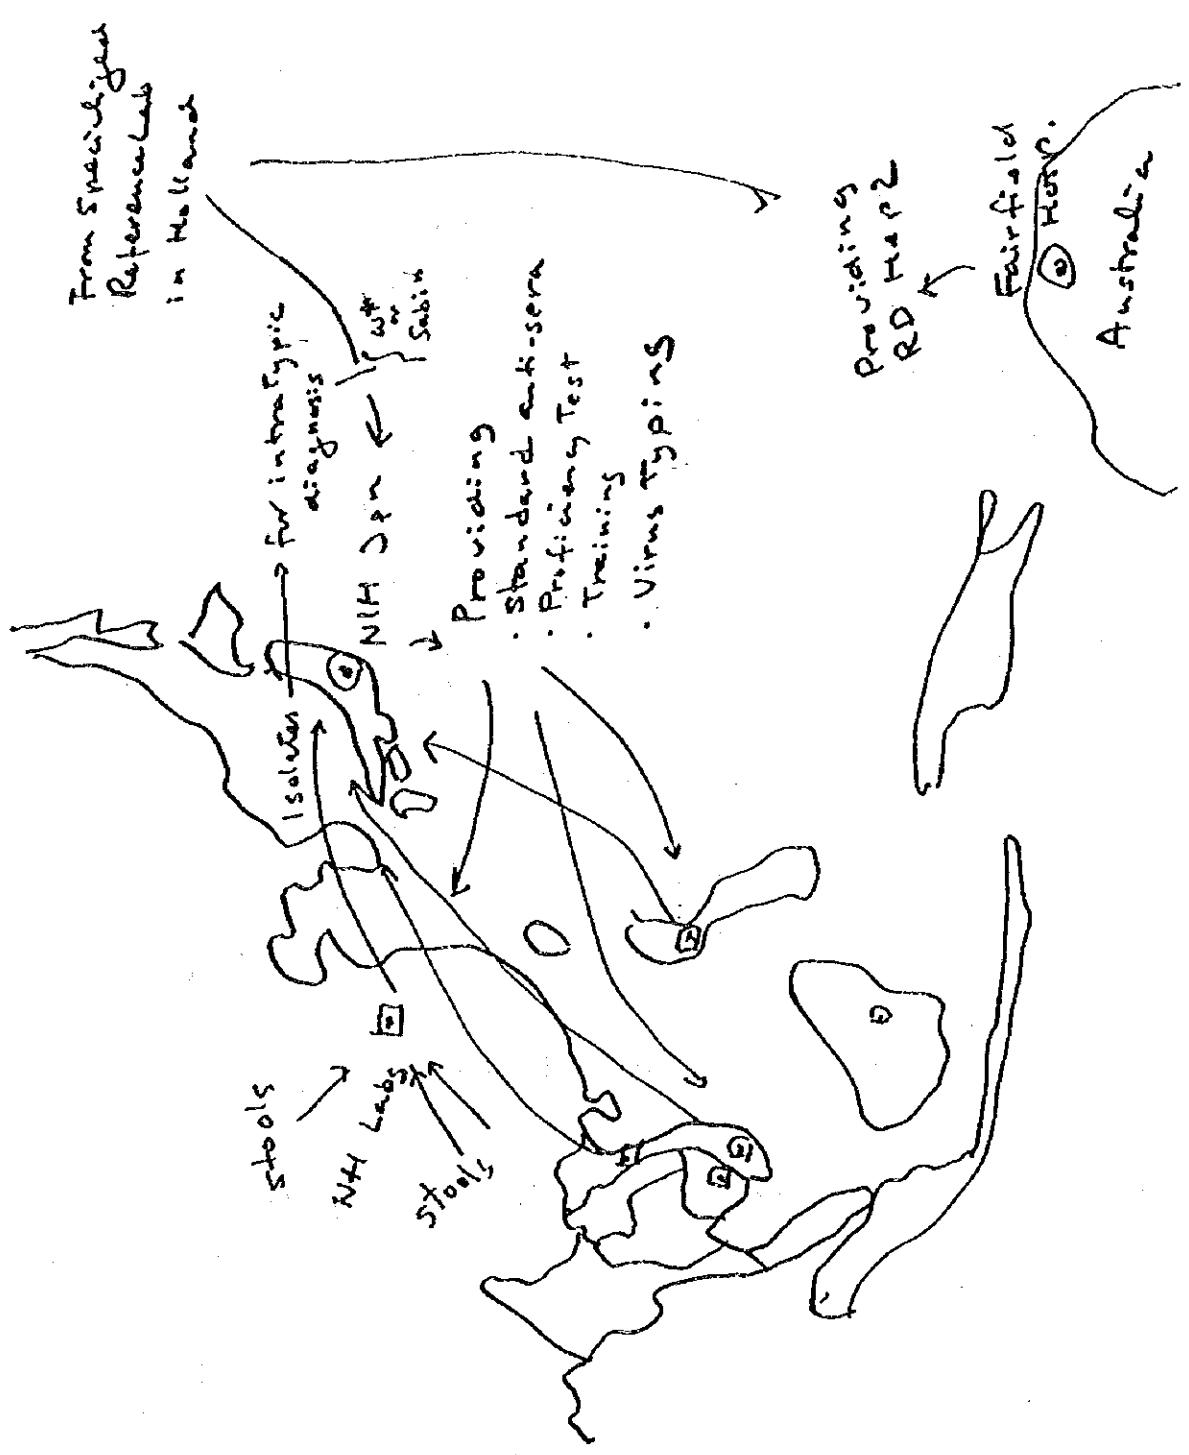 From Specialized
Reference Lab
in Holland
Isolates → for intratypic
diagnosis
wt
or
Sabin
NIH Jpn ←
Providing
· Standard anti-sera
· Proficiency Test
· Training
· Virus Typing
Stools
Ntl Labs
Stools
Providing
RD Hep2
Fairfield
Hosp.
Australia